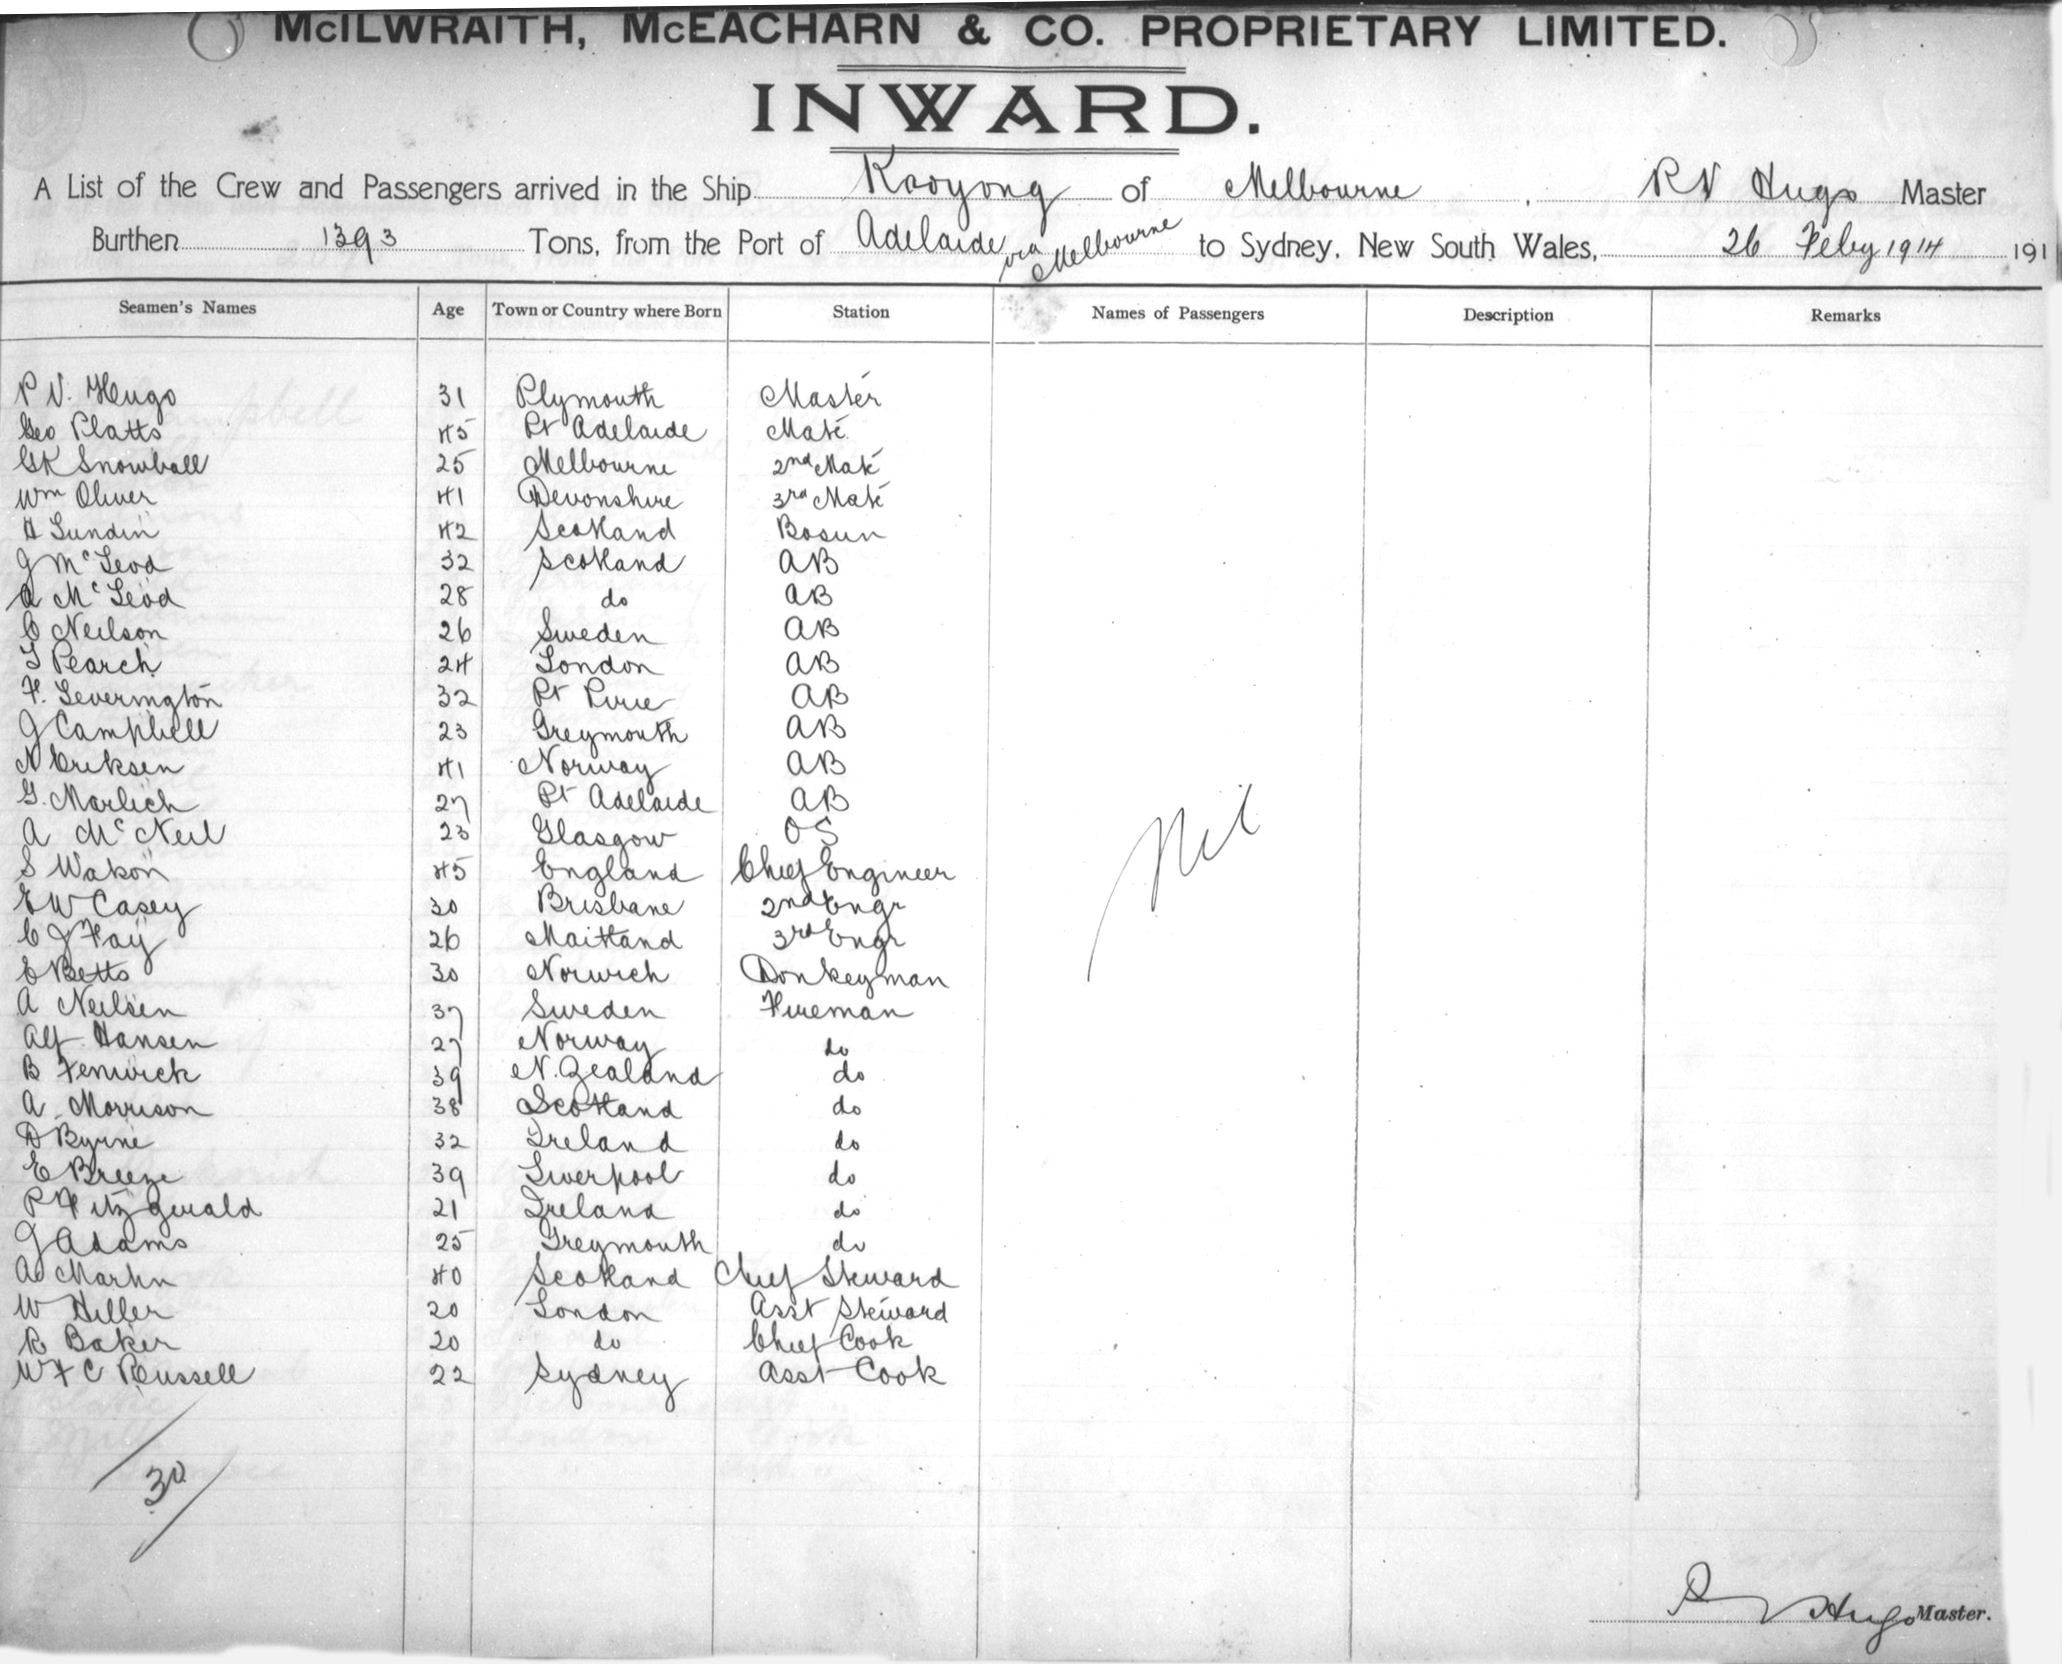 McILWRAITH, McEACHARN & CO. PROPRIETARY LIMITED.
INWARD.
A List of the Crew and Passengers arrived in the Ship Kooyong of Melbourne, R V Hugo Master
Burthen 1393 Tons, from the Port of Adelaide via Melbourne to Sydney, New South Wales, 26 Feby 1914 191
Seamen's Names Age Town or Country where Born Station Names of Passengers Description Remarks
R V. Hugo 31 Plymouth Master
Geo Platts 45 Pt Adelaide Mate
GK Snowball 25 Melbourne 2nd Mate
Wm Oliver 41 Devonshire 3rd Mate
A Lundin 42 Scotland Bosun
J McLeod 32 Scotland AB
A McLeod 28 do AB
C Neilson 26 Sweden AB
T Pearch 24 London AB
F. Leverington 32 Pt Pirie AB
J Campbell 23 Greymouth AB
N Eriksen 41 Norway AB
G. Marlich 27 Pt Adelaide AB
A McNeil 23 Glasgow OS
S Watson 45 England Chief Engineer
E W Casey 30 Brisbane 2nd Engr
C J Fay 26 Maitland 3rd Engr
E Betts 30 Norwich Donkeyman
A Neilsen 37 Sweden Fireman
Alf Hansen 27 Norway do
B Fenwick 39 N. Zealand do
A Morrison 38 Scotland do
D Byrne 32 Ireland do
E Breeze 39 Liverpool do
P Fitzgerald 21 Ireland do
J Adams 25 Greymouth do
A Martin 40 Scotland Chief Steward
W Hiller 20 London Asst Steward
R Baker 20 do Chief Cook
W F C Russell 22 Sydney Asst Cook
Nil
30
R V Hugo Master.